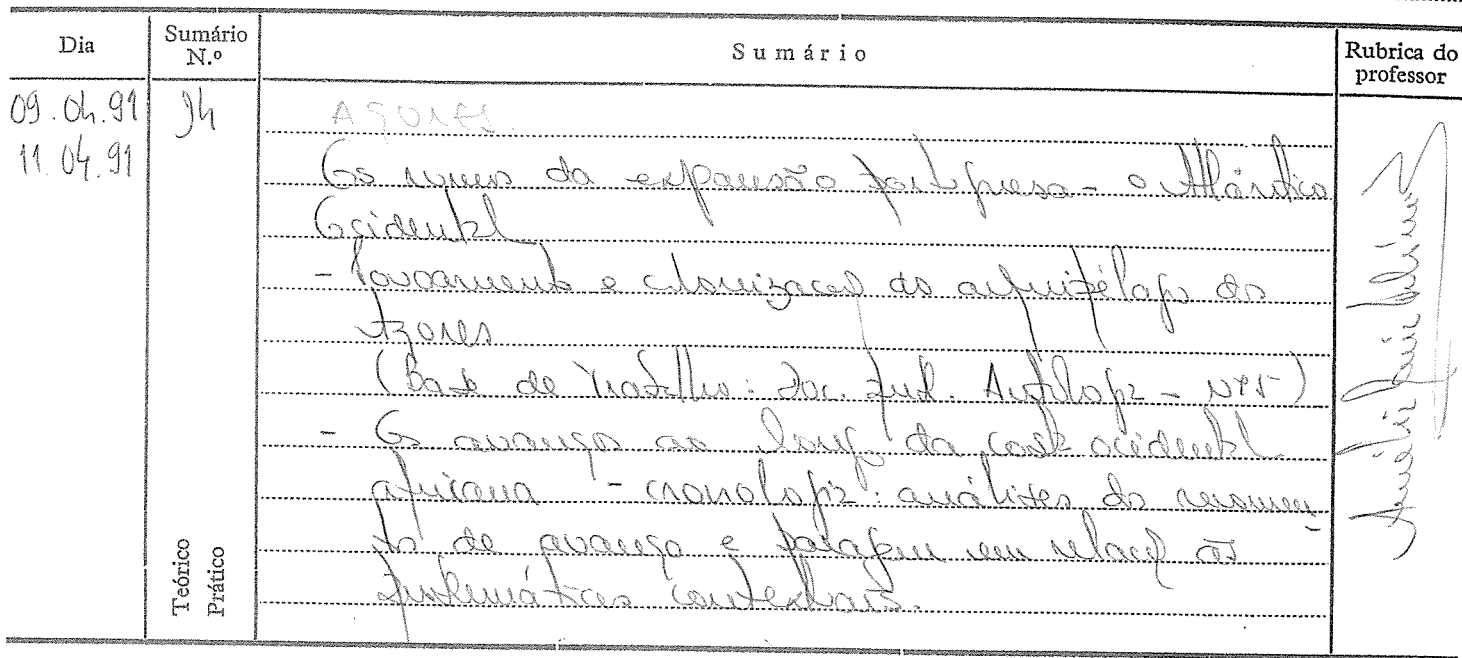 Dia
Sumário N.º
Sumário
Rubrica do professor
09.04.91
11.04.91
14
AÇORES.
Os rumos da expansão portuguesa - o Atlântico
Ocidental
- Povoamento e colonização do arquipélago dos
Açores
(Base de trabalho: Doc. Antologia - )
- Os avanços ao longo da costa ocidental
africana - cronologia: análises do momen-
to de avanço e paragem em relação às
problemáticas contextuais.
Teórico
Prático